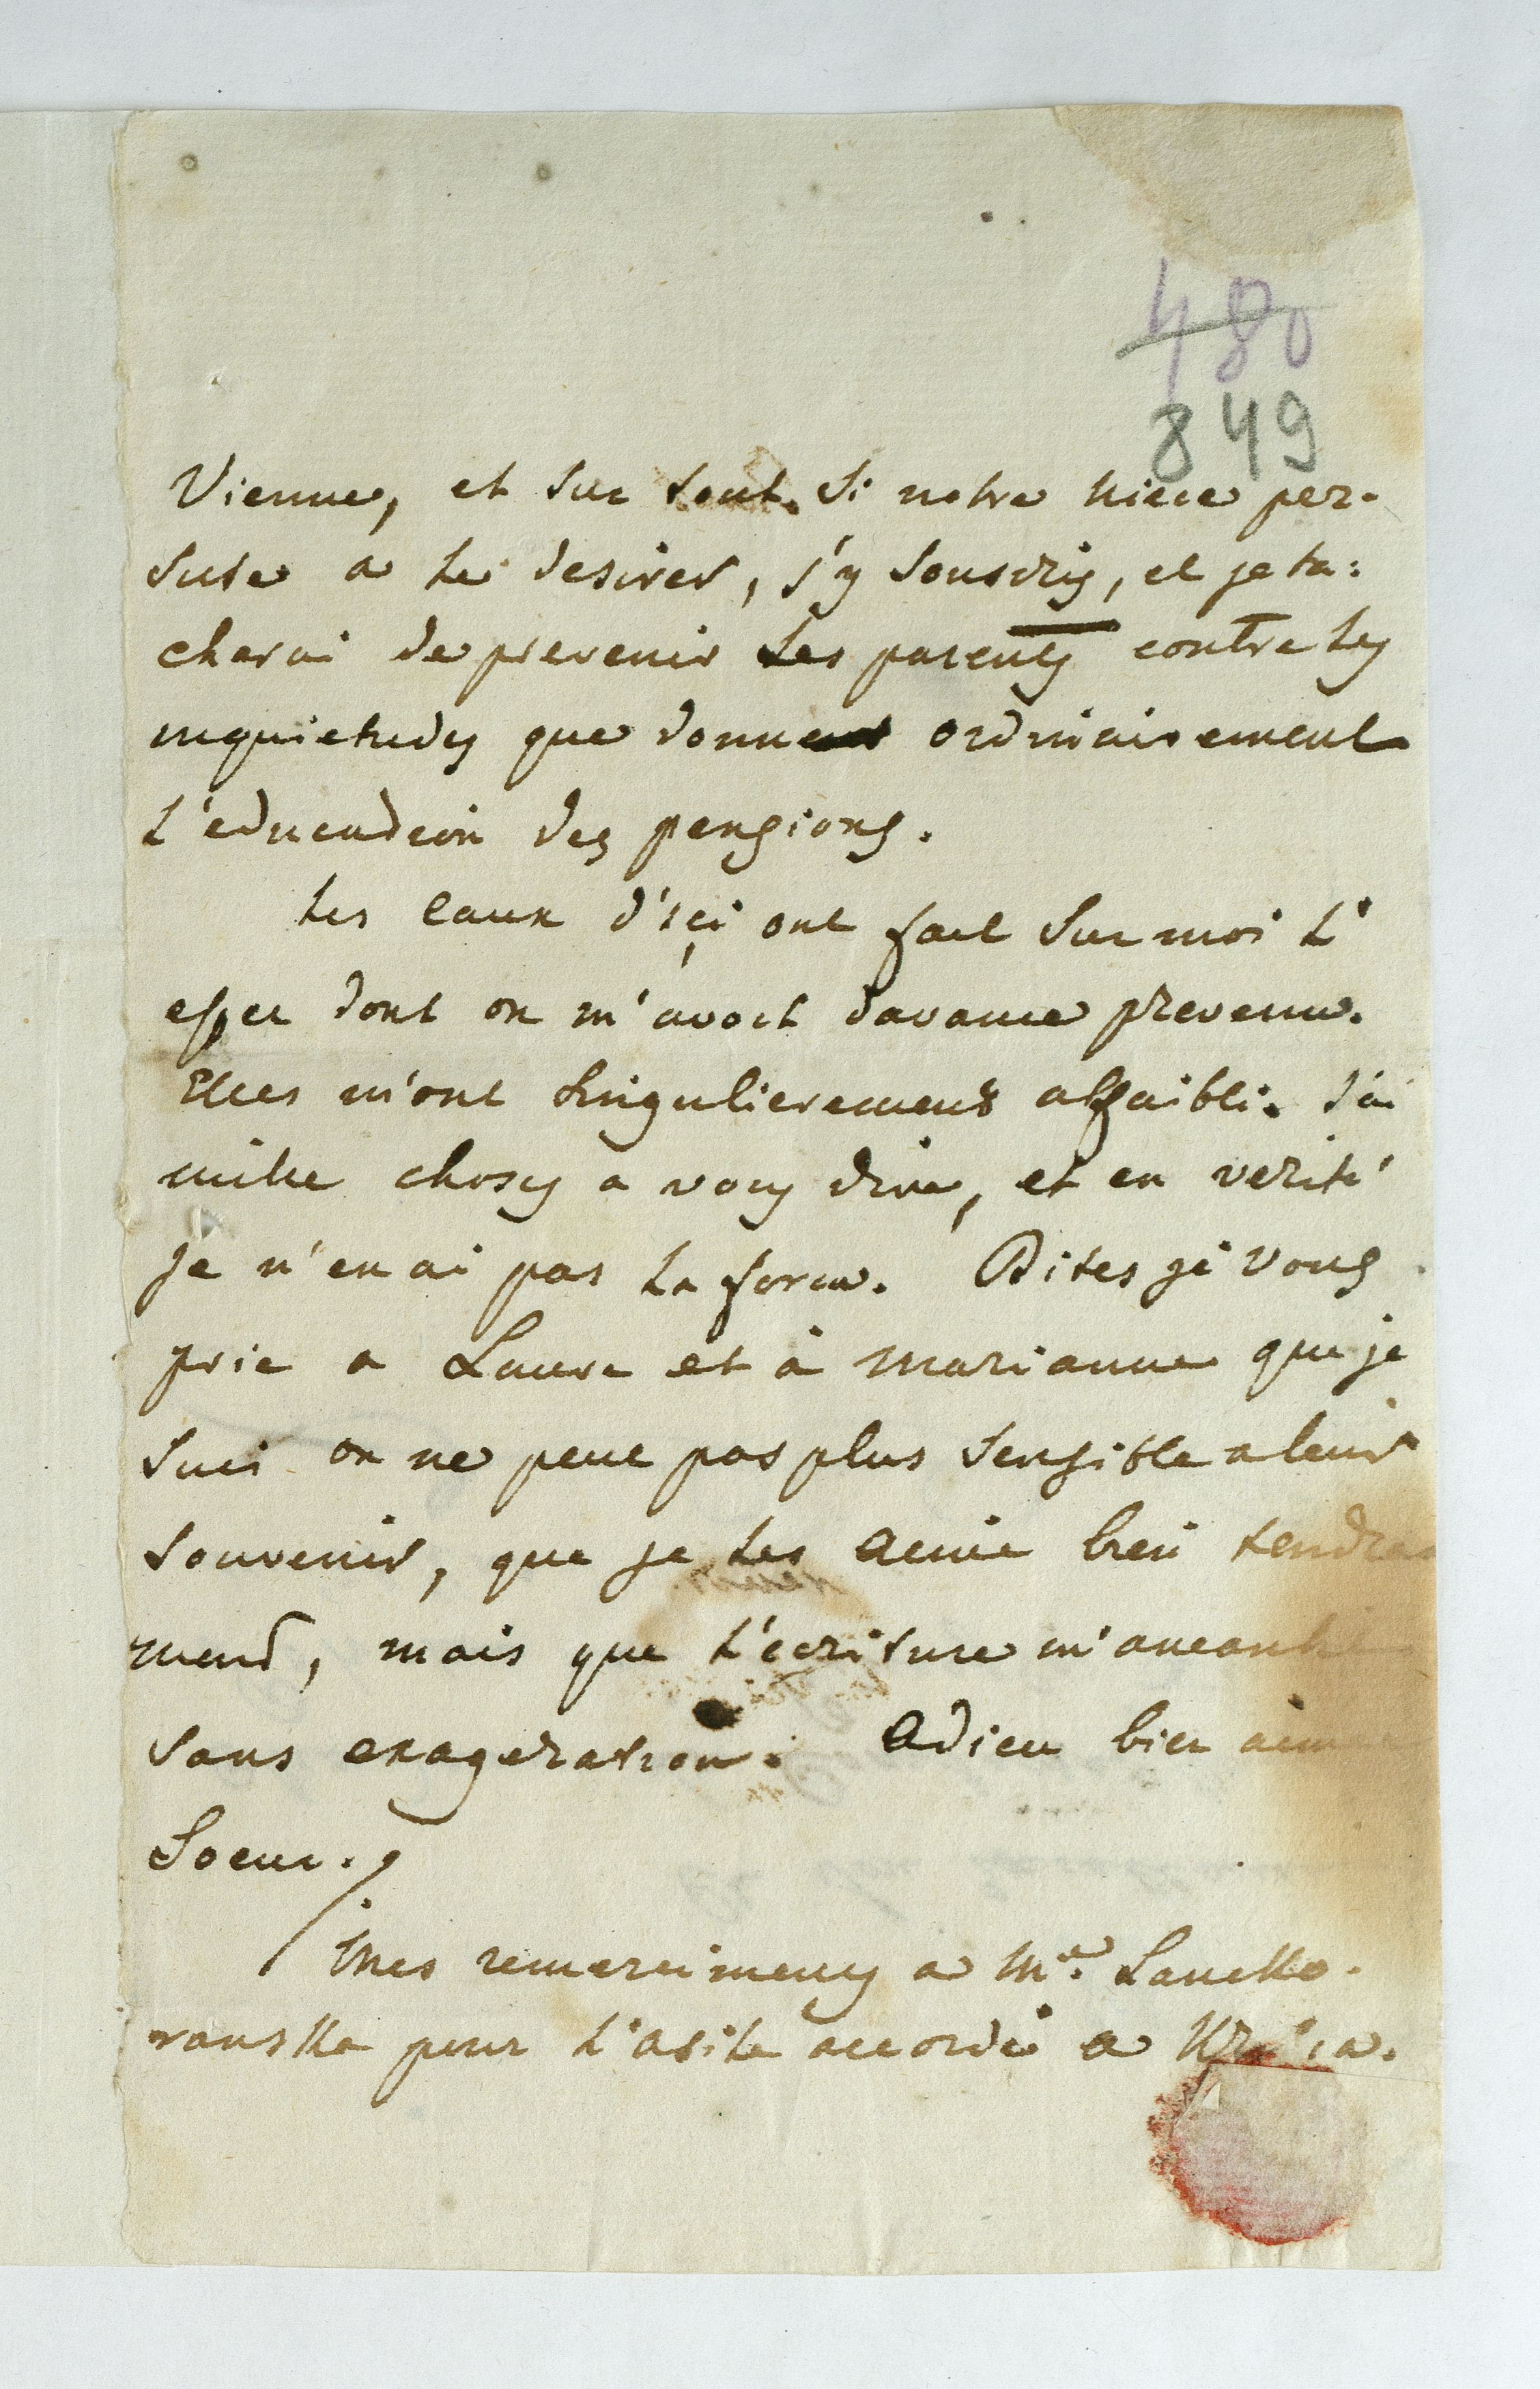 480
849
Vienne, et sur tout. Si notre niece per-
siste a le desirer, j'y souscris, et je ta-
cherai de prevenir les parents contre les
inquietudes que donne ordinairement
l'education des pensions.
Les eaux d'içi ont fait sur moi l'
effet dont on m'avoit davance prevenu.
Elles m'ont singulierement affaibli. J'ai
mille choses a vous dire, et en verité
je n'en ai pas la force. Dites je vous
prie a Laure et à Marianne que je
suis on ne peut pas plus sensible a leur
souvenir, que je les aime bien tendre
ment, mais que l'ecriture m'aneantit
sans exageration. Adieu bien aimé
Soeur.
Mes remercimens a Me. Lancko-
ronska pour l'asile accordé a